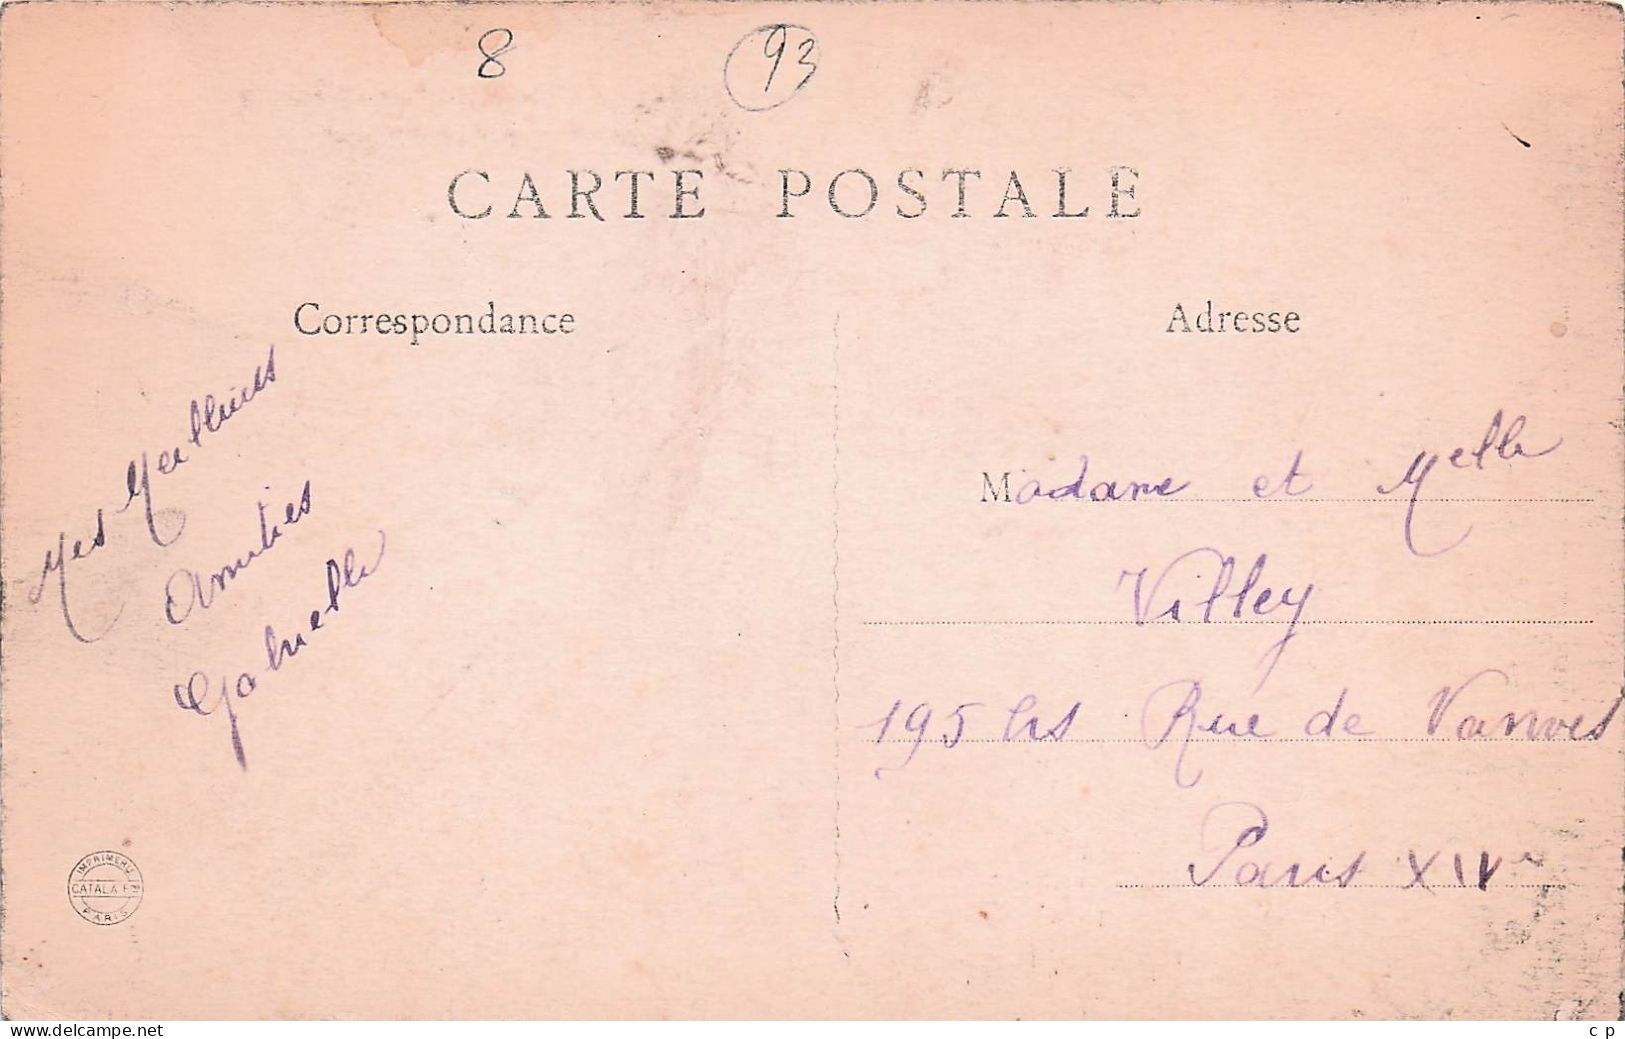 8
93
CARTE POSTALE
Correspondance
Adresse
Mes Meilleurs
Amitiés
Gabrielle
Madame et Melle
Villey
195 bis Rue de Vanves
Paris XIVe
IMPRIMERIE
CATALA FRES
PARIS
www.delcampe.net
c p